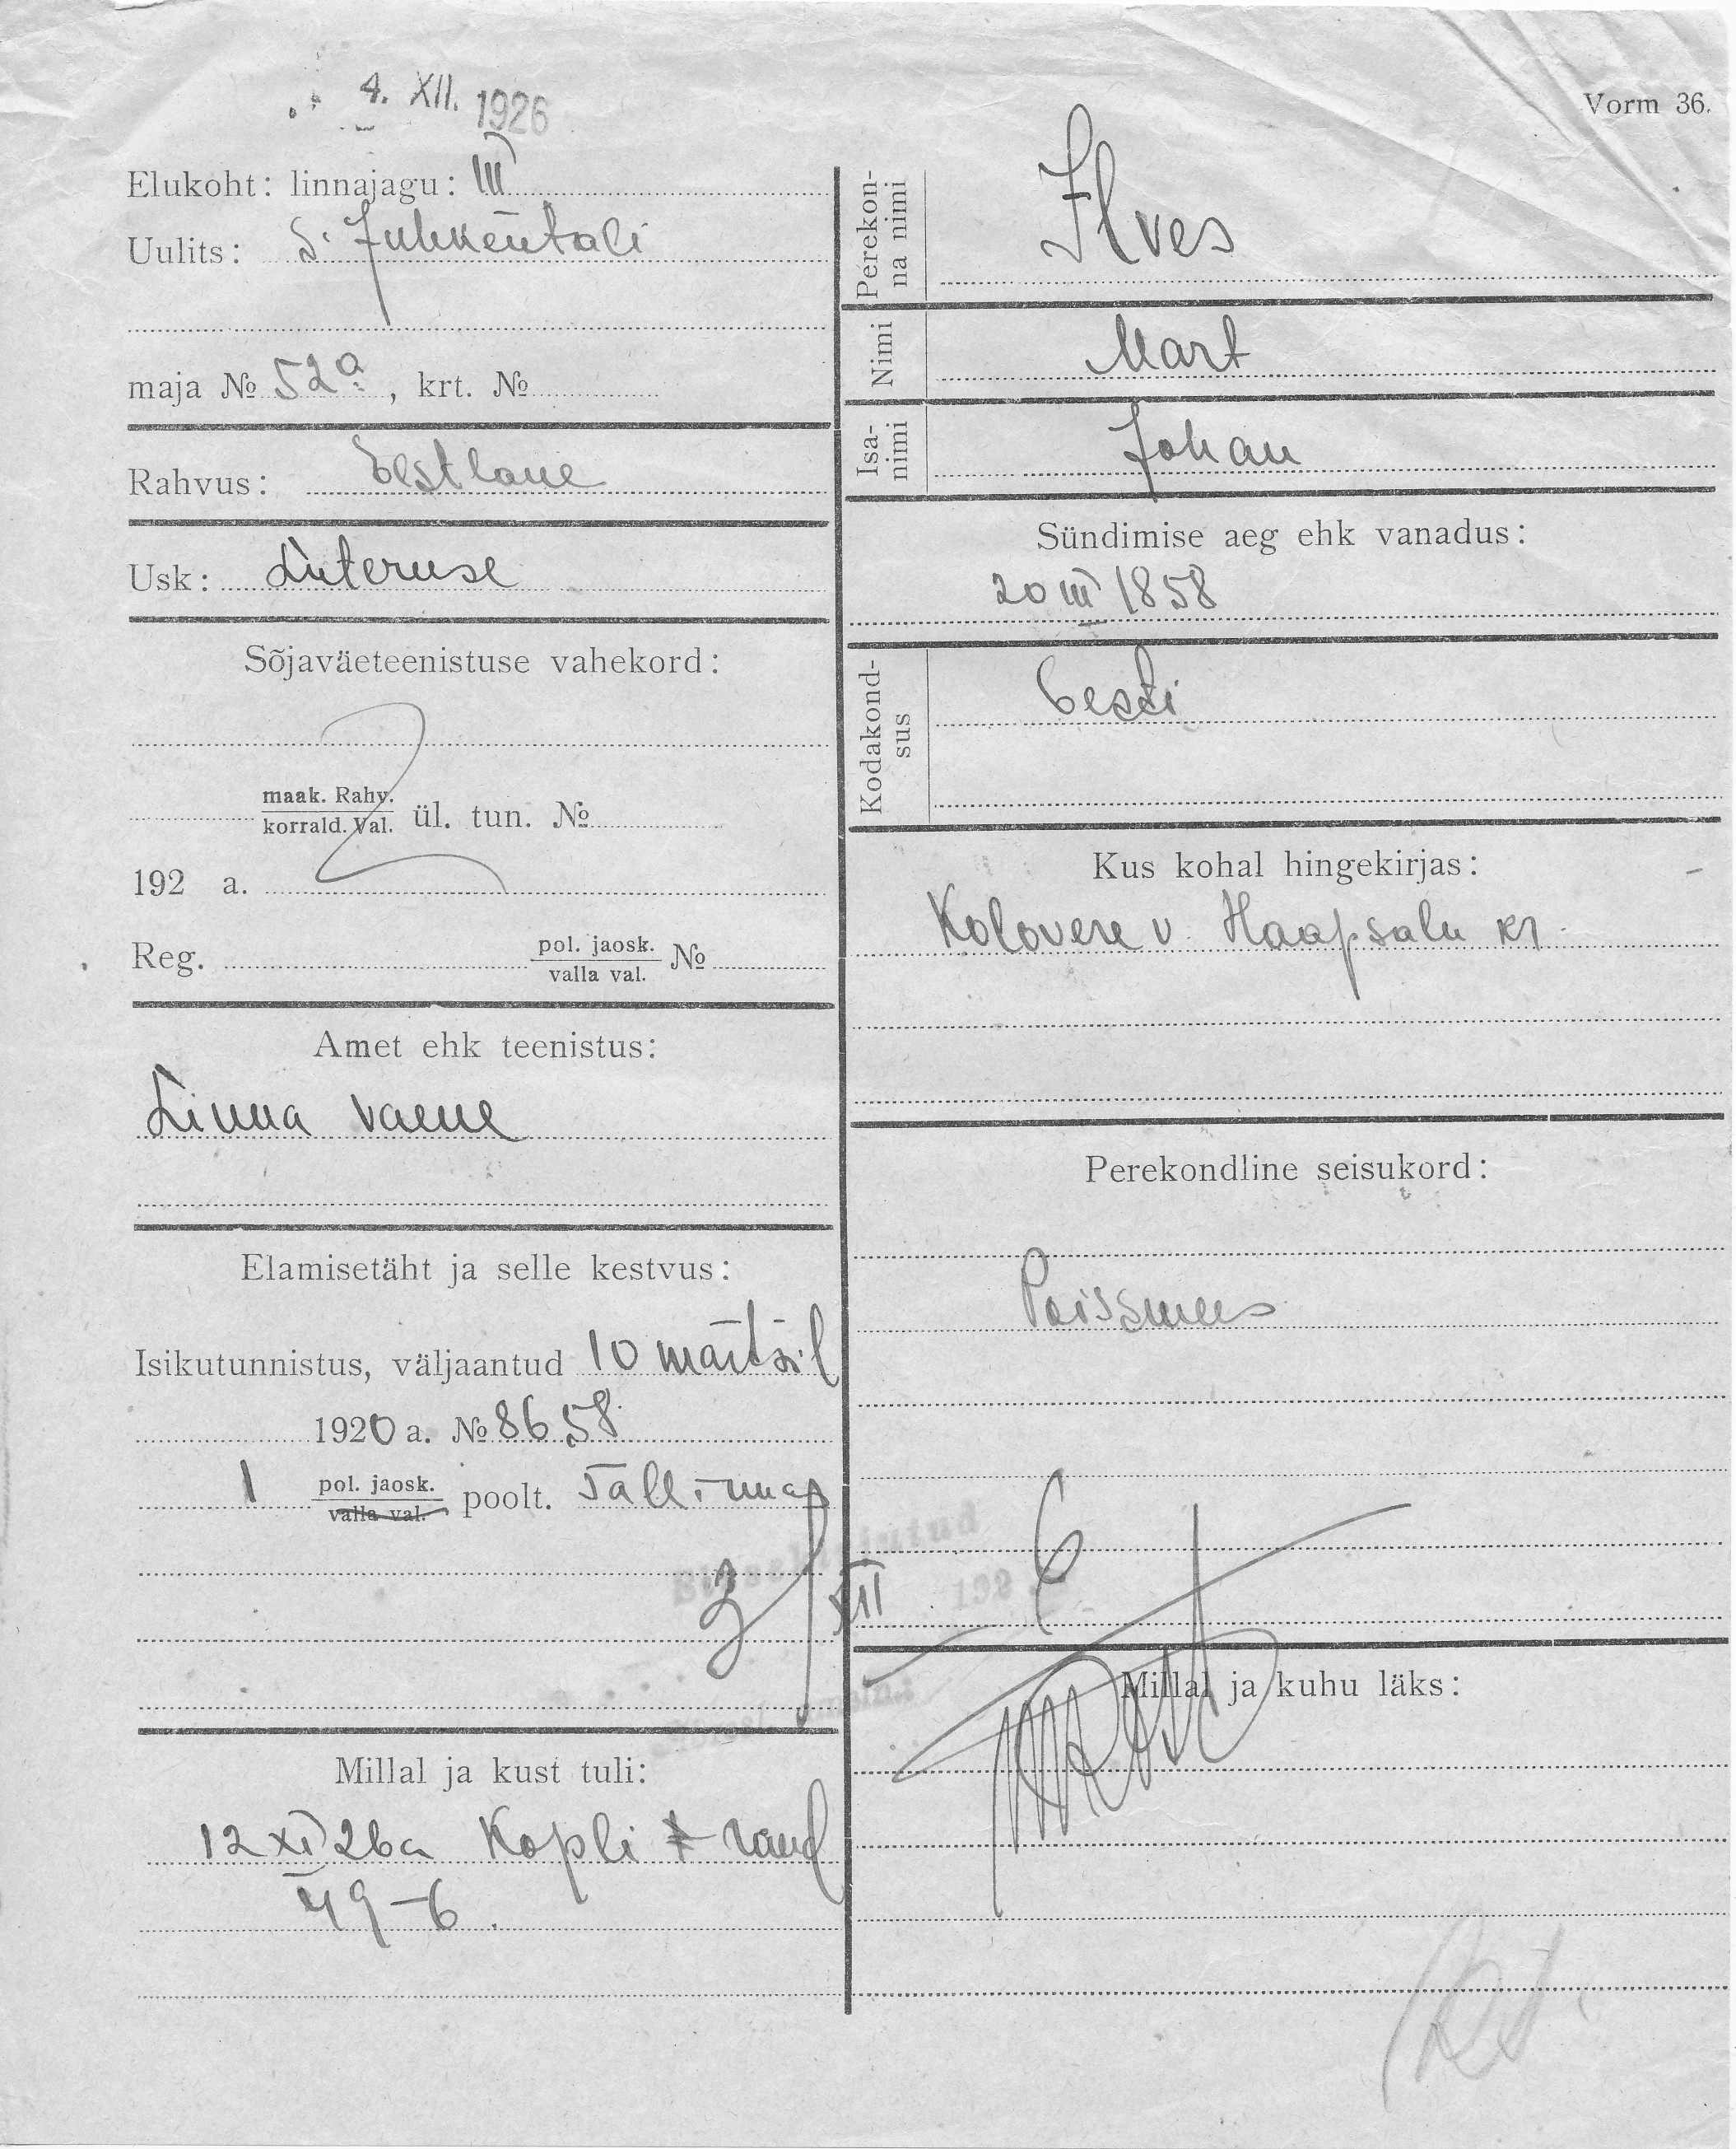 4. XII. 1926
Vorm 36.
Elukoht: linnajagu: III
Uulits: S. Juhkentali
maja № 52a, krt. №
Rahvus: Eestlane
Usk: Luteruse
Sõjaväeteenistuse vahekord:
maak. Rahv.
korrald. Val. ül. tun. №
192 a.
Reg. pol. jaosk.
valla val. №
Amet ehk teenistus:
Linna vaene
Elamisetäht ja selle kestvus:
Isikutunnistus, väljaantud 10 märtsil
1920 a. № 8658
1 pol. jaosk.
valla val. poolt. Tallinnas
3 XII 6
Millal ja kust tuli:
12 XI 26 a Kopli rand
49-6.
Perekon-
na nimi
Ilves
Nimi Mart
Isa-
nimi
Johan
Sündimise aeg ehk vanadus:
20 III 1858
Kodakond-
sus
Eesti
Kus kohal hingekirjas:
Kolovere v. Haapsalu kr
Perekondline seisukord:
Poissmees
192
Millal ja kuhu läks: